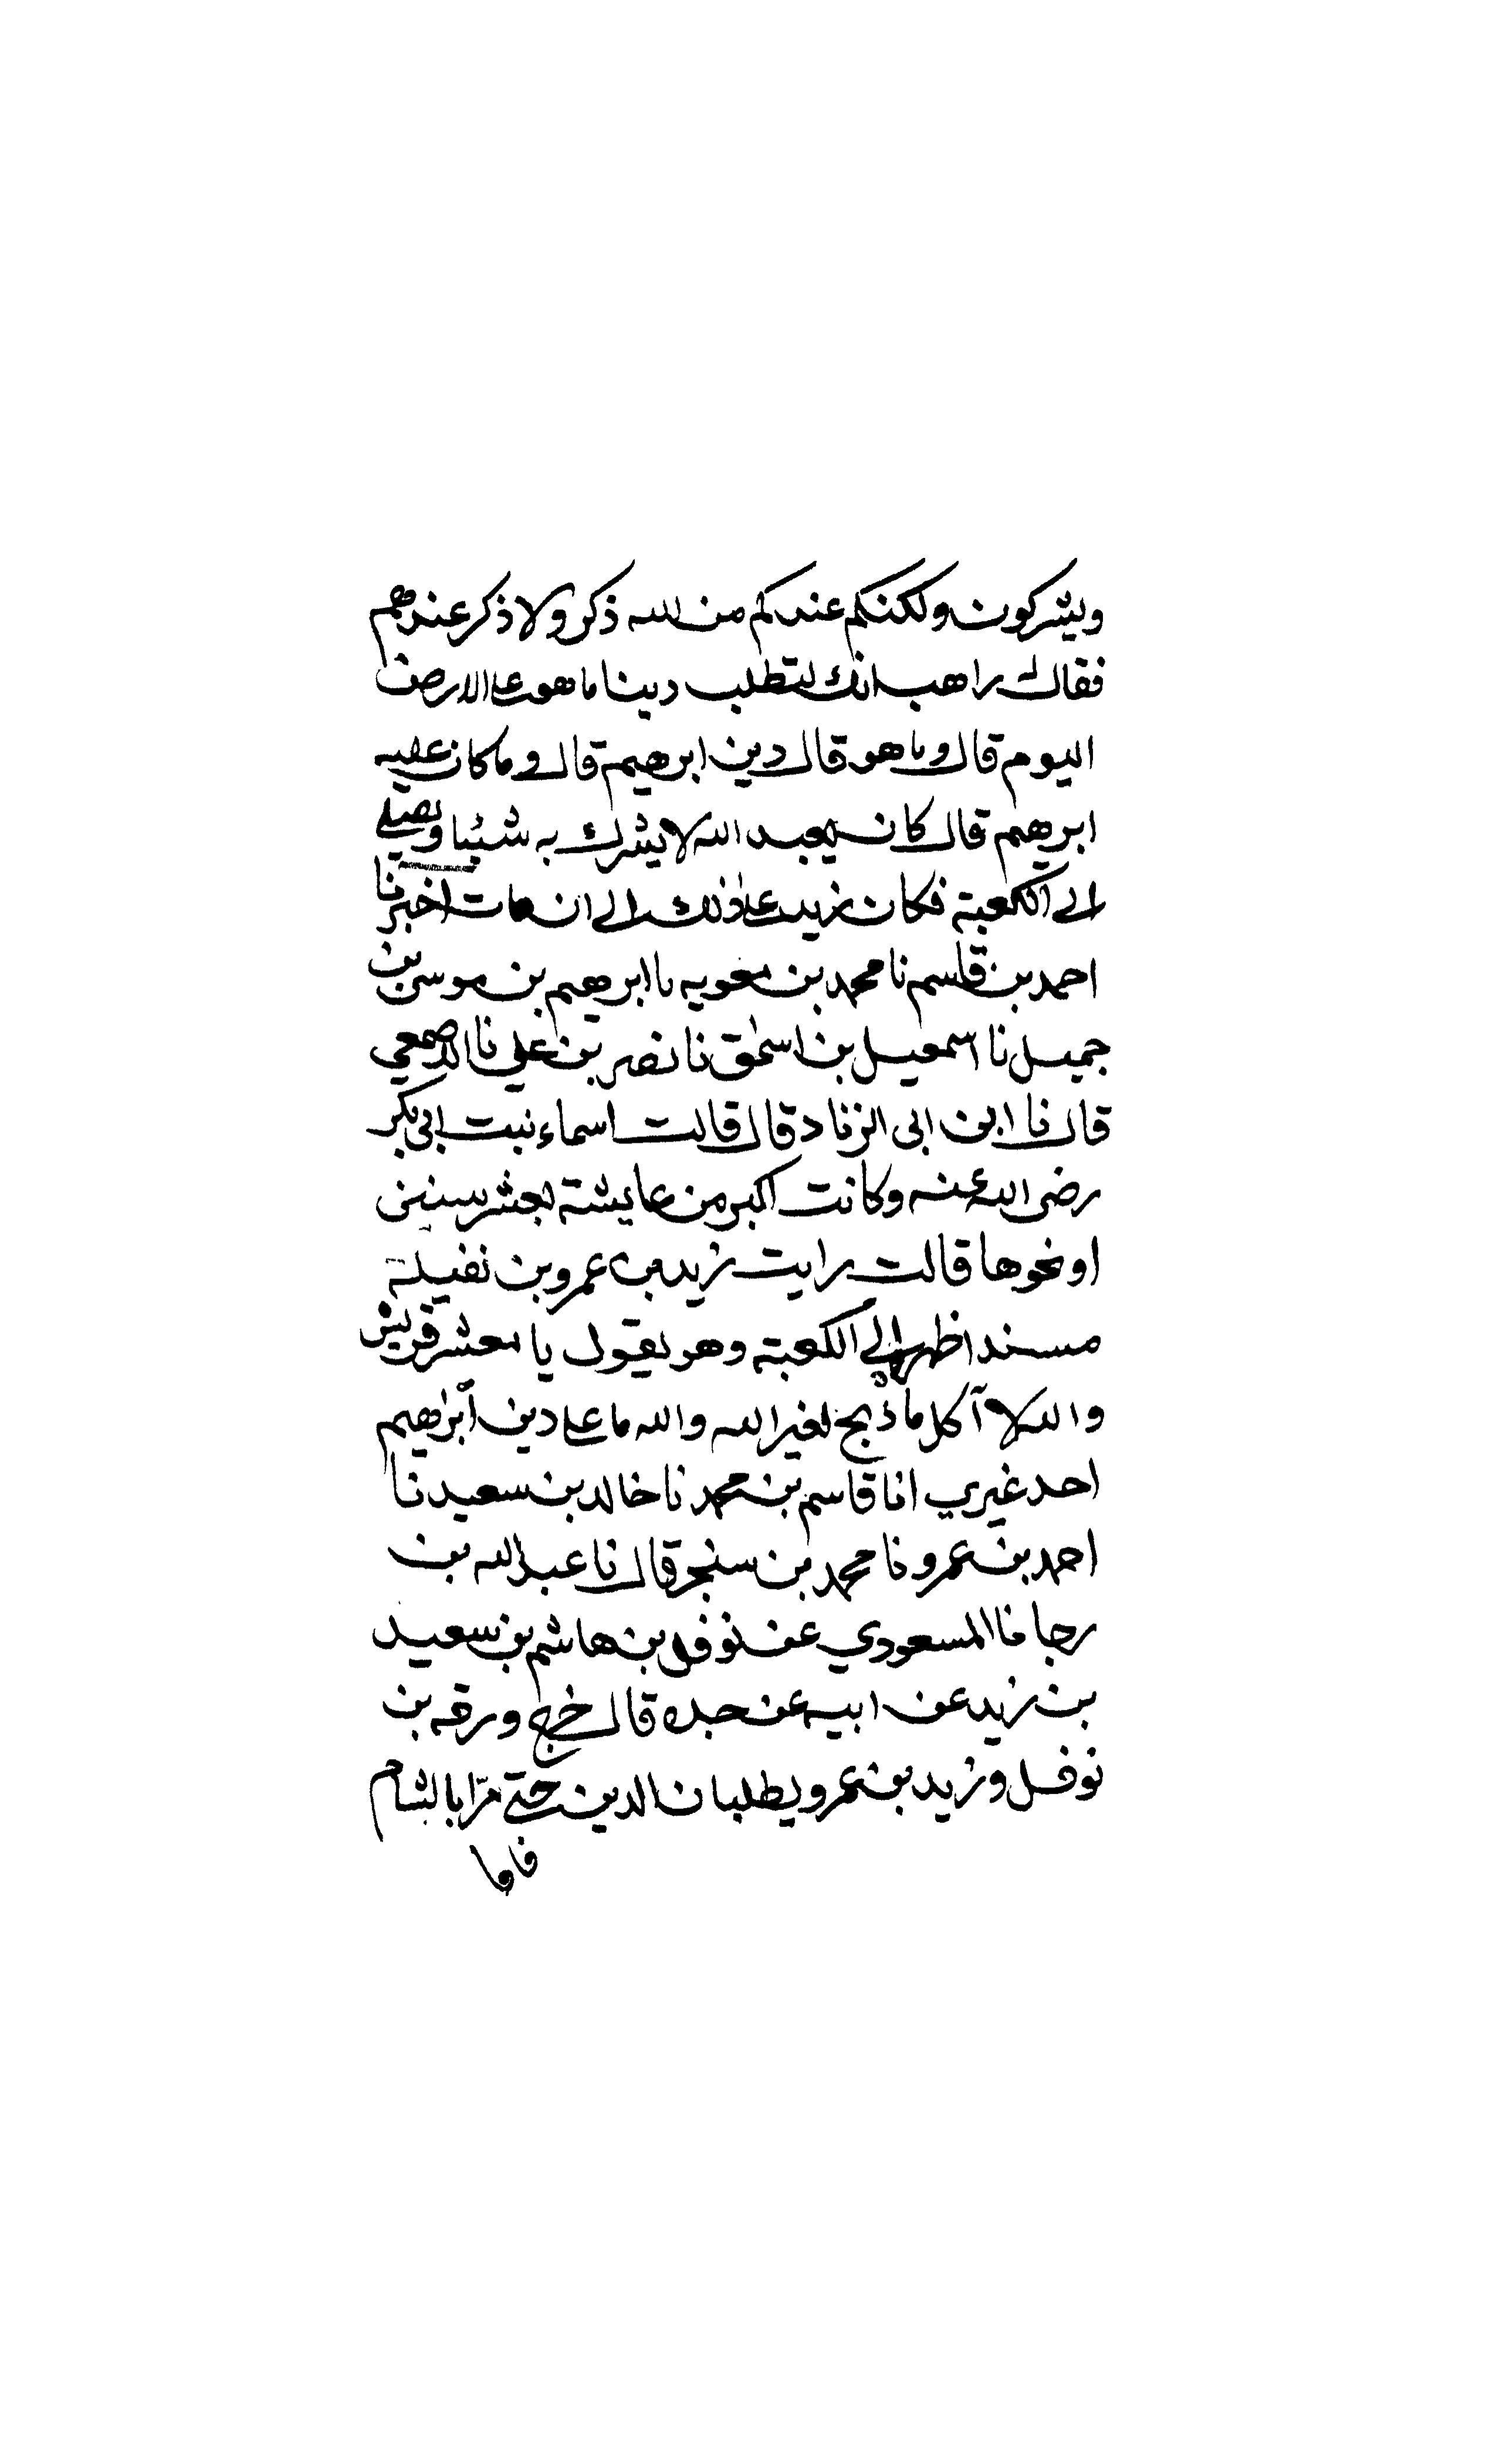 ويشركون ولكنكم عندكم من الله ذكر ولا ذكر عندهم
فقال راهب انك لتطلب دينا ما هو على الارض
اليوم قال وما هو قال دين ابرهيم قال وما كان عليه
ابرهيم قال كان يعبد الله لا يشرك به شيئا ويصلي
الى الكعبة فكان زيد على ذلك الى ان مات اخبرنا
احمد بن قاسم نا محمد بن معويه نا ابرهيم بن موسى بن
جميل نا اسمعيل بن اسحق نا نصر بن علي نا الاصمعي
قال نا ابن ابى الزناد قال قالت اسماء بنت ابى بكر
رضى الله عنه وكانت اكبر من عايشة بعشر سنين
او نحوها قالت رايت زيد بن عمرو بن نفيل
مسندا ظهره الي الكعبة وهو يقول يا معشر قريش
والله لا آكل ما ذبح لغير الله والله ما على دين ابرهيم
احد غيري انا قاسم بن محمد نا خالد بن سعيد نا
احمد بن عمرو نا محمد بن سنجر قال نا عبد الله بن
رجا نا المسعودي عن نوفل بن هاشم بن سعيد
بن زيد عن ابيه عن جده قال خرج ورقه بن
نوفل وزيد بن عمرو يطلبان الدين حتى مرّا بالشام
فاما